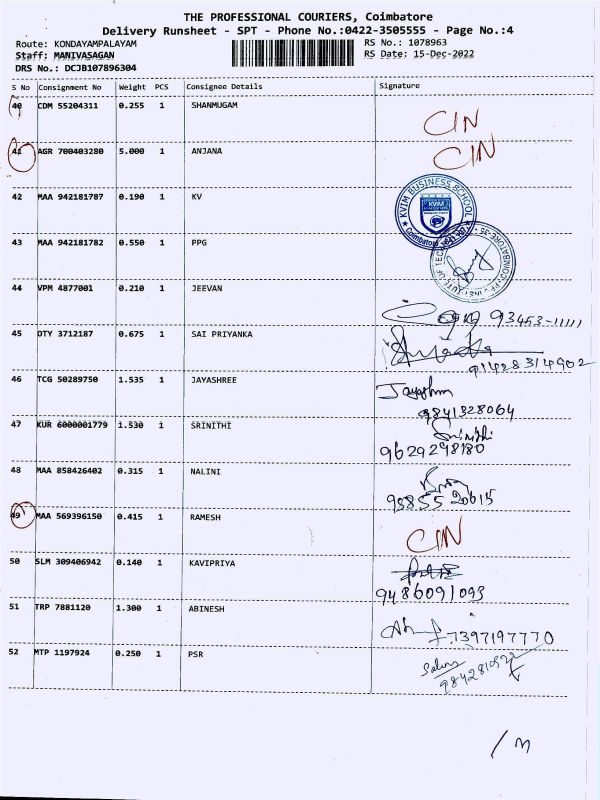 THE PROFESSIONAL COURIERS, Coimbatore
Delivery Runsheet - SPT - Phone No.:0422-3505555 - Page No.:4
Route: KONDAYAMPALAYAM RS No.: 1078963
Staff: MANIVASAGAN RS Date: 15-Dec-2022
DRS No.: DCJB107896304
S No Consignment No Weight PCS Consignee Details Signature
40 CDM 55204311 0.255 1 SHANMUGAM CIN
41 AGR 700403280 5.000 1 ANJANA CIN
42 MAA 942181787 0.190 1 KV
KVIM BUSINESS SCHOOL
KVIM
43 MAA 942181782 0.550 1 PPG
44 VPM 4877001 0.210 1 JEEVAN
93453-11111
45 OTY 3712187 0.675 1 SAI PRIYANKA
46 TCG 50289750 1.535 1 JAYASHREE
9841328064
47 KUR 6000001779 1.530 1 SRINITHI Srinithi
9629248180
48 MAA 858426402 0.315 1 NALINI
49 MAA 569396150 0.415 1 RAMESH CIN
50 SLM 309406942 0.140 1 KAVIPRIYA
9486091093
51 TRP 7881120 1.300 1 ABINESH 7397197770
52 MTP 1197924 0.250 1 PSR